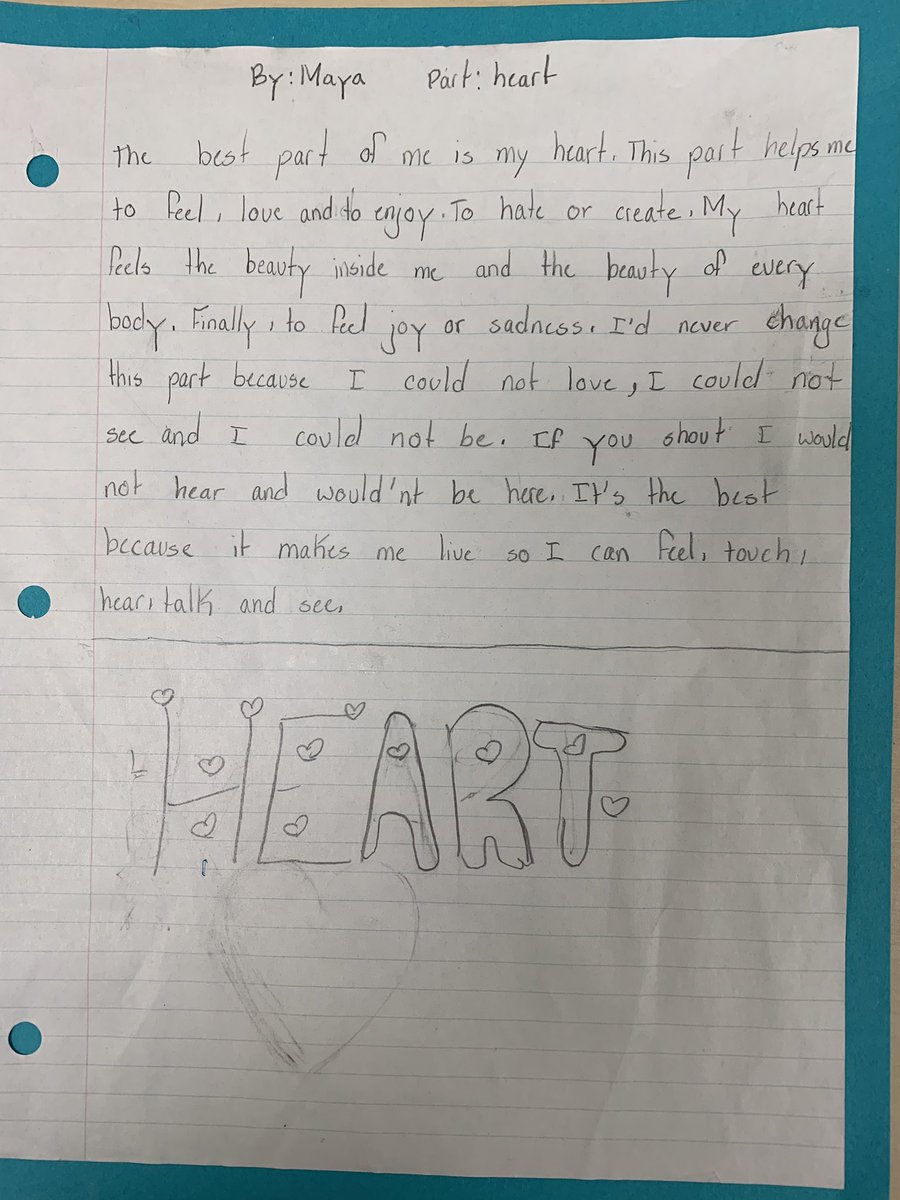 By: Maya Part: heart
The best part of me is my heart. This part helps me
to feel, love and to enjoy. To hate or create. My heart
feels the beauty inside me and the beauty of every
body. Finally, to feel joy or sadness. I'd never change
this part because I could not love, I could not
see and I could not be. If you shout I would
not hear and would'nt be here. It's the best
because it makes me live so I can feel, touch,
hear, talk and see.
HEART